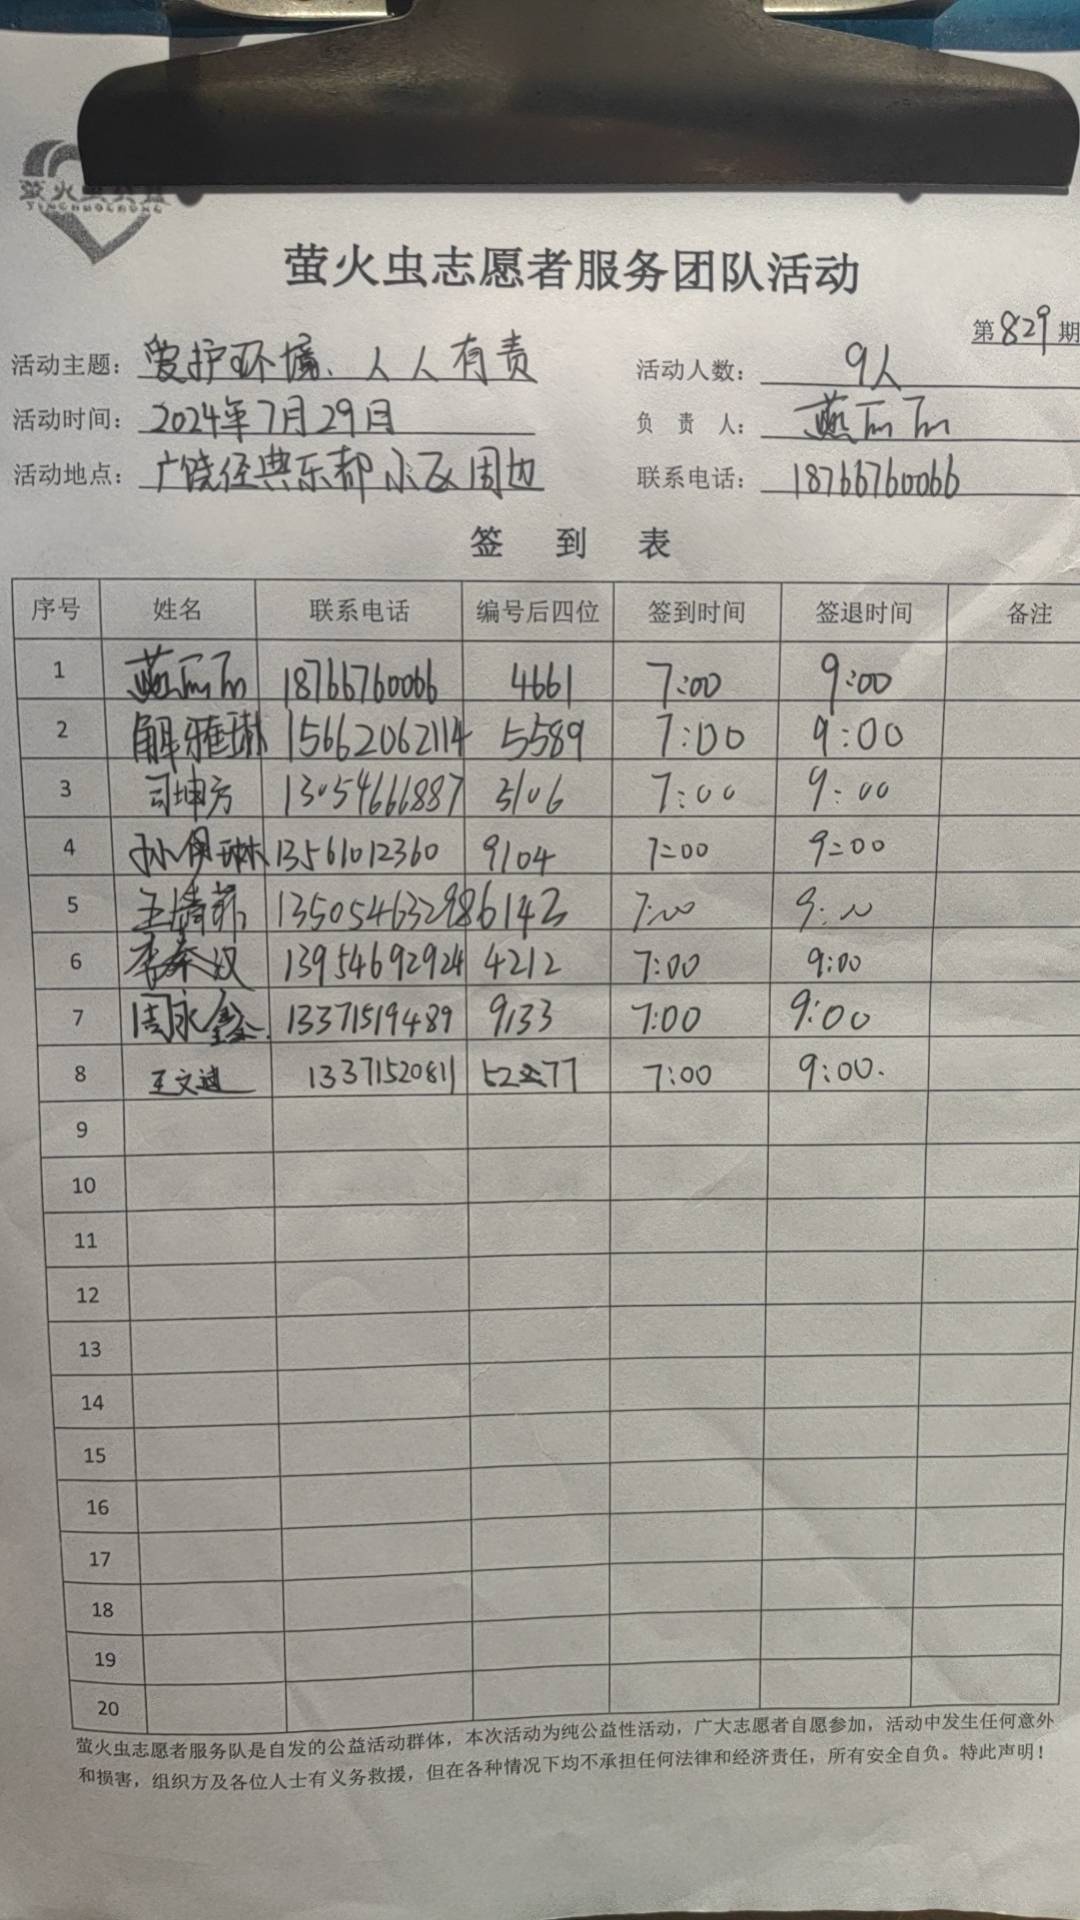 萤火虫公益
YINGHUOCHONG
萤火虫志愿者服务团队活动
第829期
活动主题：爱护环境、人人有责 活动人数：9人
活动时间：2024年7月29日 负责人：燕丽丽
活动地点：广饶经典乐都小区周边 联系电话：18766760066
签到表
序号 姓名 联系电话 编号后四位 签到时间 签退时间 备注
1 燕丽丽 18766760066 4661 7:00 9:00
2 解雅琳 15662062114 5589 7:00 9:00
3 司坤方 13054666887 3106 7:00 9:00
4 孙伊琳 13561012360 9104 7:00 9:00
5 王清 13505463298 6142 7:00 9:00
6 李秦汉 13954692924 4212 7:00 9:00
7 周永鑫 13371519489 9133 7:00 9:00
8 王文 13371520811 7:00 9:00.
9
10
11
12
13
14
15
16
17
18
19
20
萤火虫志愿者服务队是自发的公益活动群体，本次活动为纯公益性活动，广大志愿者自愿参加，活动中发生任何意外
和损害，组织方及各位人士有义务救援，但在各种情况下均不承担任何法律和经济责任，所有安全自负。特此声明！